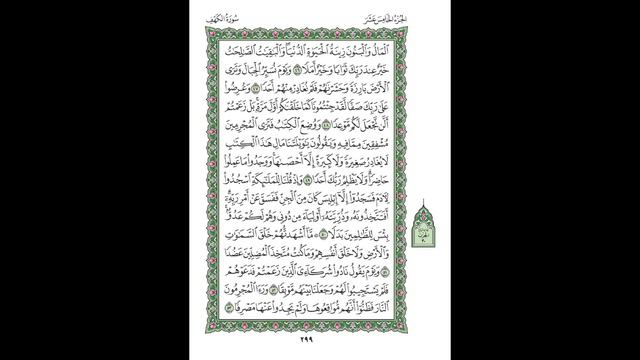 الجزء الخامس عشر
سورة الكهف
المال والبنون زينة الحيوة الدنيا والبقيت الصلحت
خير عند ربك ثوابا وخير أملا ٤٦ ويوم نسير الجبال وترى
الأرض بارزة وحشرنهم فلم نغادر منهم أحدا ٤٧ وعرضوا
على ربك صفا لقد جئتمونا كما خلقنكم أول مرة بل زعمتم
ألن نجعل لكم موعدا ٤٨ ووضع الكتب فترى المجرمين
مشفقين مما فيه ويقولون يويلتنا مال هذا الكتب
لا يغادر صغيرة ولا كبيرة إلا أحصىها ووجدوا ما عملوا
حاضرا ولا يظلم ربك أحدا ٤٩ وإذ قلنا للملئكة اسجدوا
لأدم فسجدوا إلا إبليس كان من الجن ففسق عن أمر ربه
أفتتخذونه وذريته أولياء من دوني وهم لكم عدو
بئس للظلمين بدلا ٥٠ ما أشهدتهم خلق السموت
والأرض ولا خلق أنفسهم وما كنت متخذ المضلين عضدا
٥١ ويوم يقول نادوا شركاءي الذين زعمتم فدعوهم
فلم يستجيبوا لهم وجعلنا بينهم موبقا ٥٢ ورءا المجرمون
النار فظنوا أنهم مواقعوها ولم يجدوا عنها مصرفا ٥٣
٢٩٩